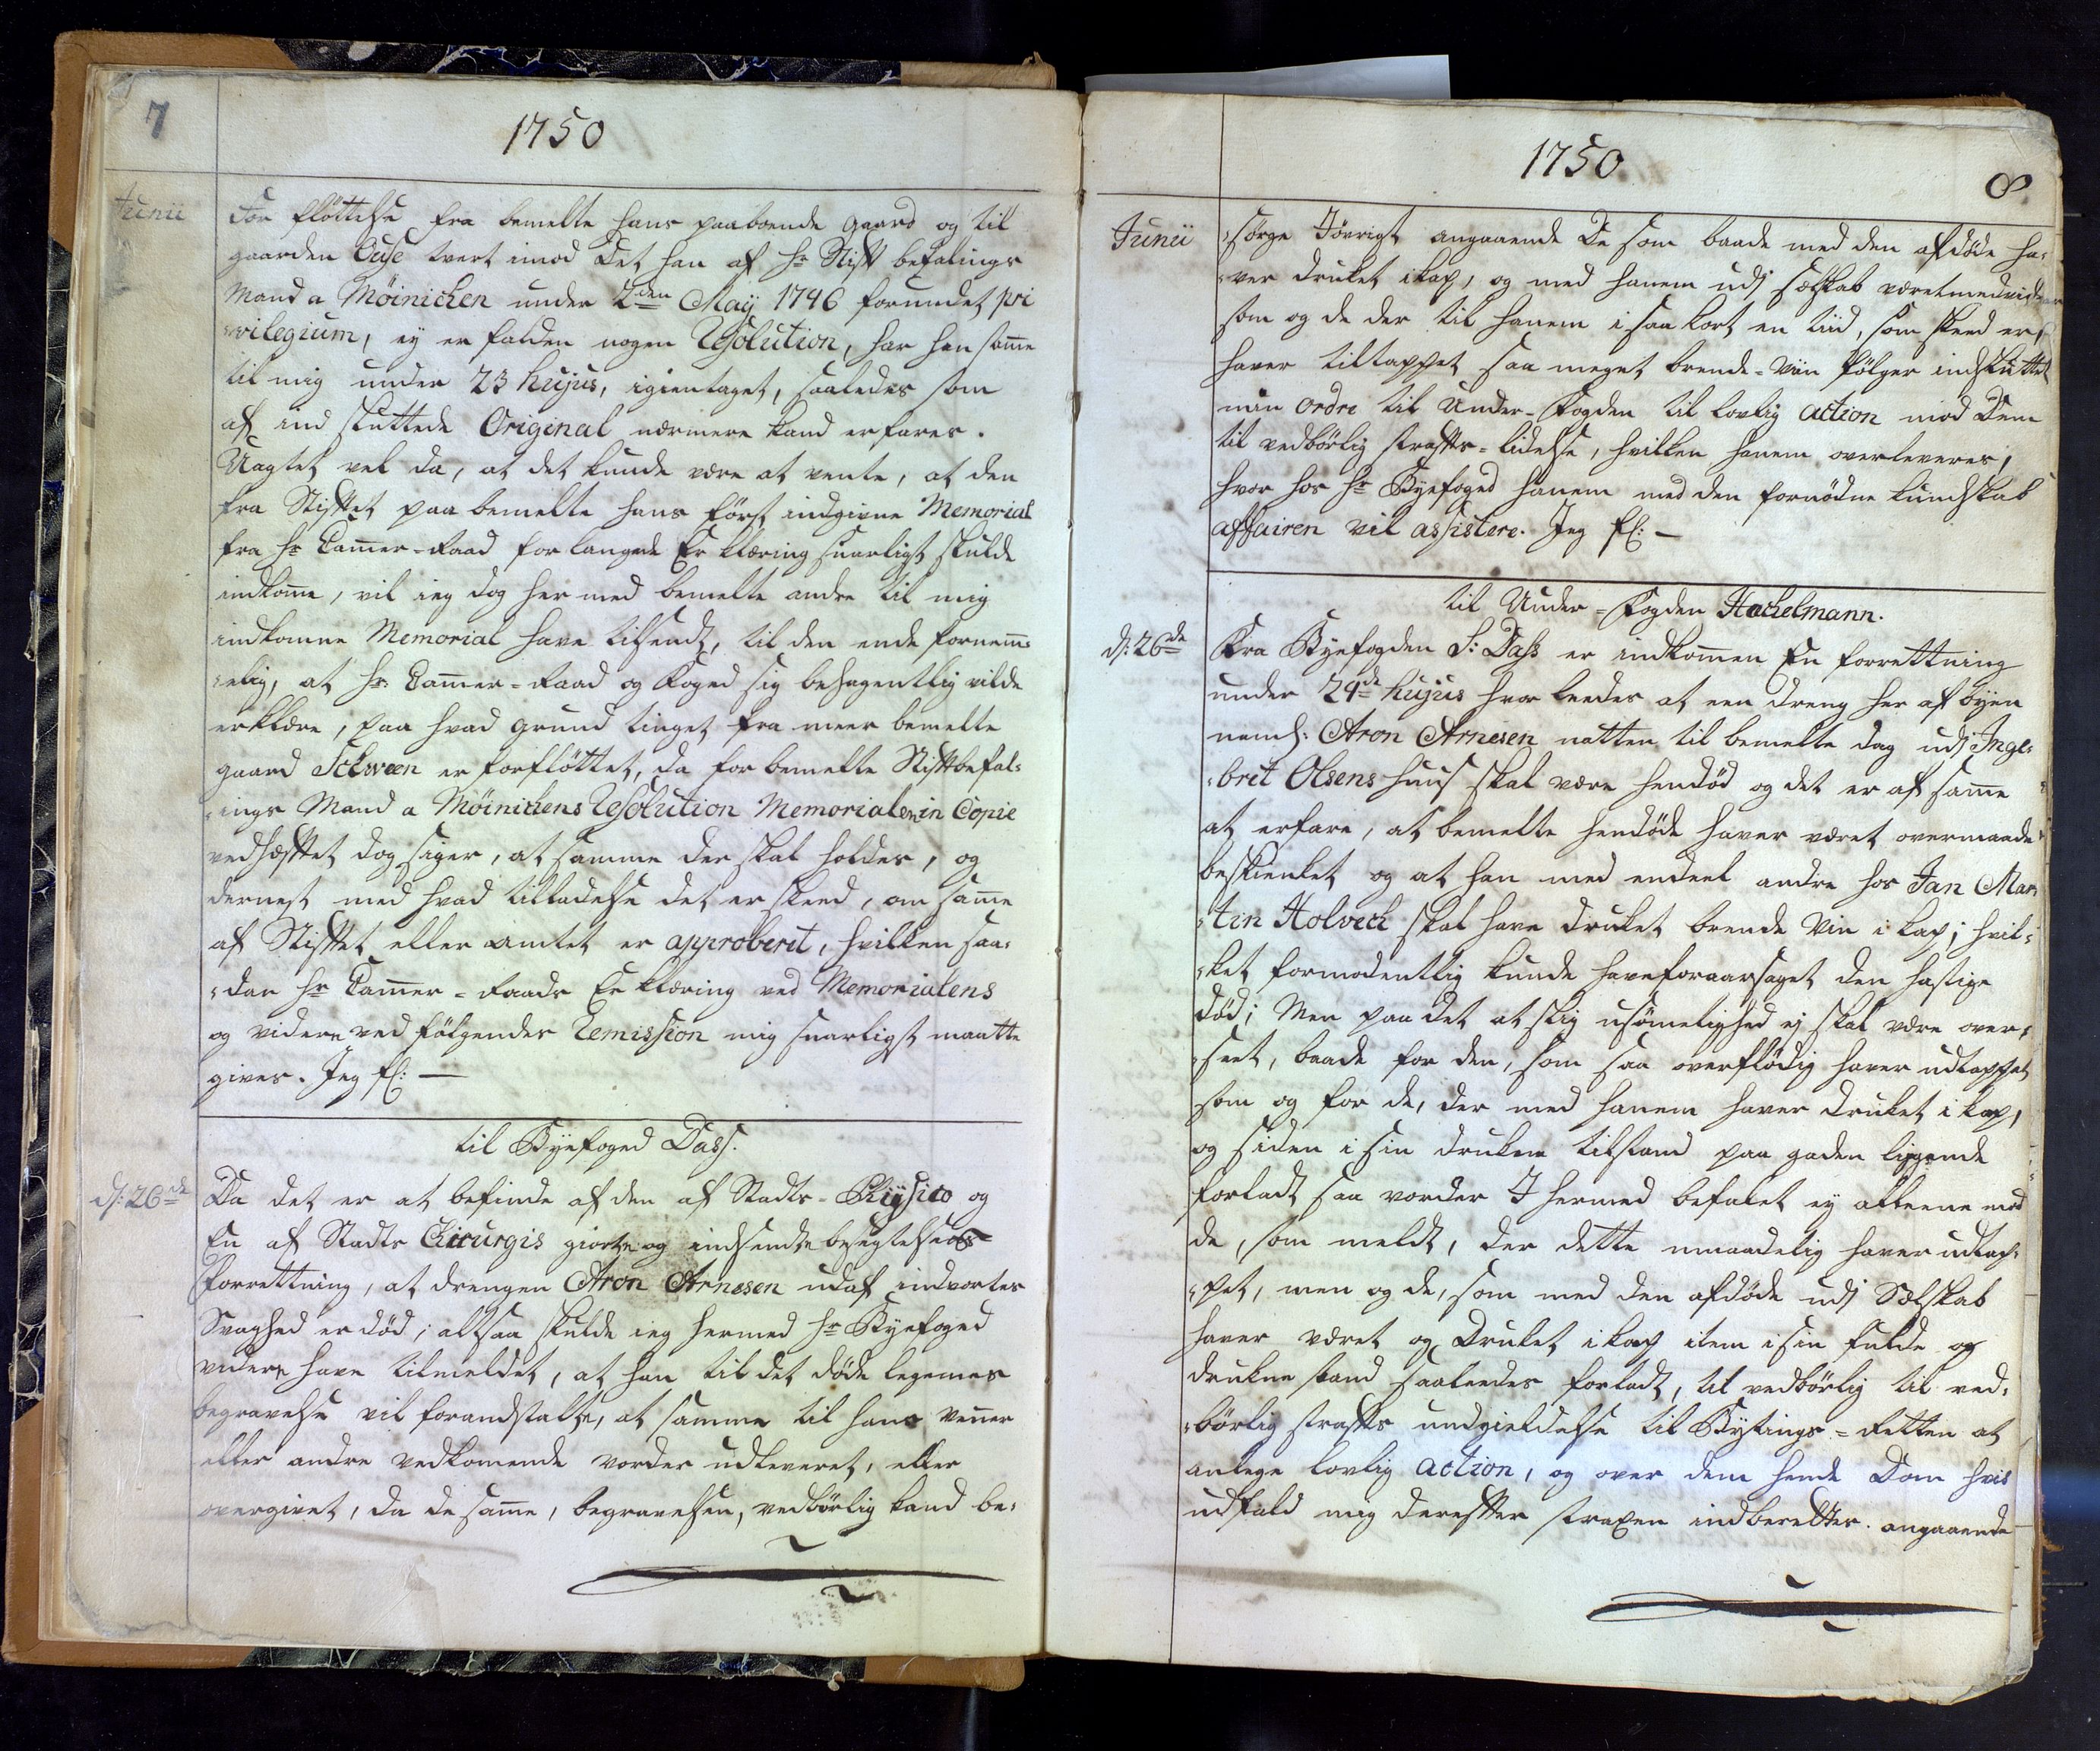 7
1750
Junii
For fløttelse fra bemelte hans paaboende gaard og til
gaarden Cuse tvert imod det han af Hr Stift befalings
Mand a Möinichen under 2den Maij 1746 forundet pri
-vilegium, ey er falden nogen Resolution, har han samme
til mig under 23 hujus, igientaget, saaledes som
af ind sluttede Original nærmere kand erfares.
Uagtet vel da, at det kunde være at vente, at den
fra Stiftet paa bemelte hans først indgivne Memorial
fra Hr Cammer-Raad forlangede Erklæring snarligst skulde
indkomme, vil ieg dog her med bemelte andre til mig
indkomne Memorial have tilsendt, til den ende fornem-
-elig, at Hr: Cammer-Raad og Foged sig behagentlig vilde
erklære, paa hvad grund tinget fra meer bemelte
gaard Schween er forfløttet, da for bemelte Stiftbefal-
-ings Mand a Möinichens Resolution Memorialen in Copie
vedhæftet dog siger, at samme der skal holdes, og
dernest med hvad tilladelse det er skeed, om samme
af Stiftet eller amtet er approberit, hvilken saa-
-dan Hr Cammer-Raads Erklæring ved Memorialens
og videre ved følgendes Remission mig snarligst maatte
gives. Jeg f: —
til Byefoged Dass.
d: 26de
Da det er at befinde af den af Stadts-Phÿsico og
En af Stadts Chirurgis giorte og indsendte besigtelses
Forrettning, at drengen Aron Arnesen udaf indvortes
Svaghed er død; altsaa skulde ieg hermed Hr Byefoged
videre have tilmeldet, at han til det døde legemes
begravelse vil forandstalte, at samme til hans venner
eller andre vedkomende vorder udleveret, eller
overgivet, da de samme, begravelsen, vedbørlig kand be-
1750
8
Junii
-sørge Jøvrigt angaaende De som baade med den afdøde ha-
-ver drukket i kap, og med hanem udj selskab været medvider
som og de der til hanem i saa kort en tiid, som skeed er,
haver tiltappet saa meget brende-Viin følger indsluttet
min ordre til Under-Fogden til lovlig action mod Dem
til vedbørlig straffs-lidelse, hvilken hanem overleveres,
hvor hos Hr Byefoged hanem med den fornødne kundskab
affairen vil assistere. Jeg f: —
til Under-Fogden Hackelmann.
d: 26de
Fra Byefogden S: Dass er indkommen En forrettning
under 24de hujus hvorleedes at een dreng her af byen
navnl: Aron Arnesen natten til bemelte dag udj Inge-
-brit Olsens huus skal være hendød og det er af samme
at erfare, at bemelte hendøde haver været overmaade
beskienket og at han med endeel andre hos Jan Mar
-tin Holveck skal have drukket brende Viin i kap; hvil-
-ket formodentlig kunde have foraarsaget den hastige
død; Men paa det at slig usømelighed ej skal være over-
-seet, baade for den, som saa overflødig haver udtappet
som og for de, der med hanem haver drukket i kap,
og siden i sin drukne tilstand paa gaden liggende
forladt saa vorder I hermed befalet ey alleene mod
de, som meldt, der dette umaadelig haver udtap-
-pet, men og de, som med den afdøde udj Selskab
haver været og Drukket i kap item i sin fulde og
drukne stand saaleedes forladt, til vedbørlig til ved-
-børlig straffs undgieldelse til Bytings-Retten at
anlege lovlig action, og over dem hende Dom hvis
udfald mig derefter straxen indberettes. angaaende